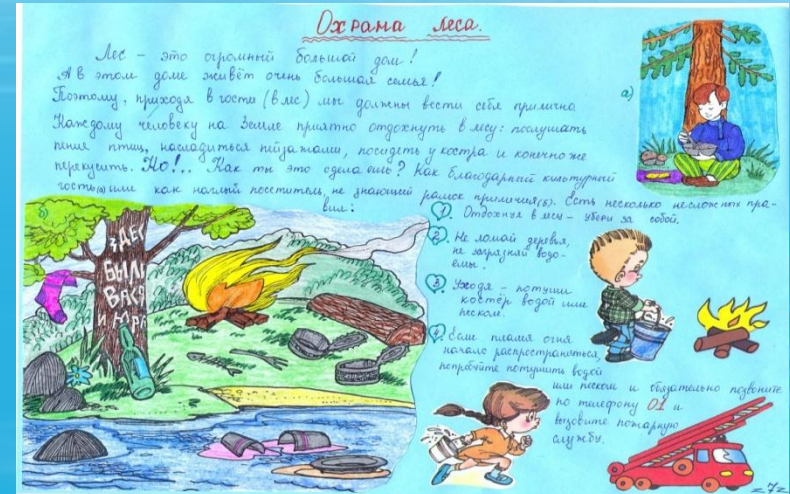 Охрана леса.
Лес – это огромный большой дом!
А в этом доме живёт очень большая семья!
Поэтому, приходя в гости (в лес) мы должны вести себя прилично.
Каждому человеку на Земле приятно отдохнуть в лесу: послушать
пение птиц, насладиться пейзажами, посидеть у костра и конечно же
перекусить. Но!... Как ты это сделаешь? Как благодарный культурный
гость(а) или как наглый посетитель, не знающий рамок приличия(б). Есть несколько несложных пра-
вил:
а)
б)
1. Отдохнул в лесу – убери за собой.
2. Не ломай деревья,
не загрязняй водо-
ёмы.
3. Уходя – потуши
костёр водой или
песком.
4. Если пламя огня
начало распространяться,
попробуйте потушить водой
или песком и обязательно позвоните
по телефону 01 и
вызовите пожарную
службу.
ЗДЕС
БЫЛИ
ВАСЯ
И ИРА
7